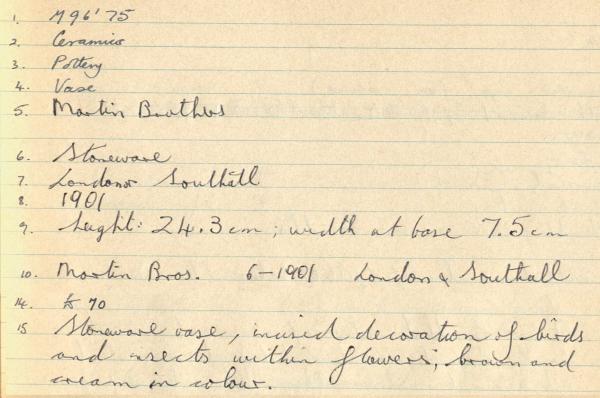 1. M96'75
2. Ceramics
3. Pottery
4. Vase
5. Martin Brothers
6. Stoneware
7. London & Southall
8. 1901
9. height: 24.3cm; width at base 7.5cm
10. Martin Bros. 6-1901 London & Southall
14. 70
15 Stoneware vase, incised decoration of birds
and insects within flowers; brown and
cream in colour.